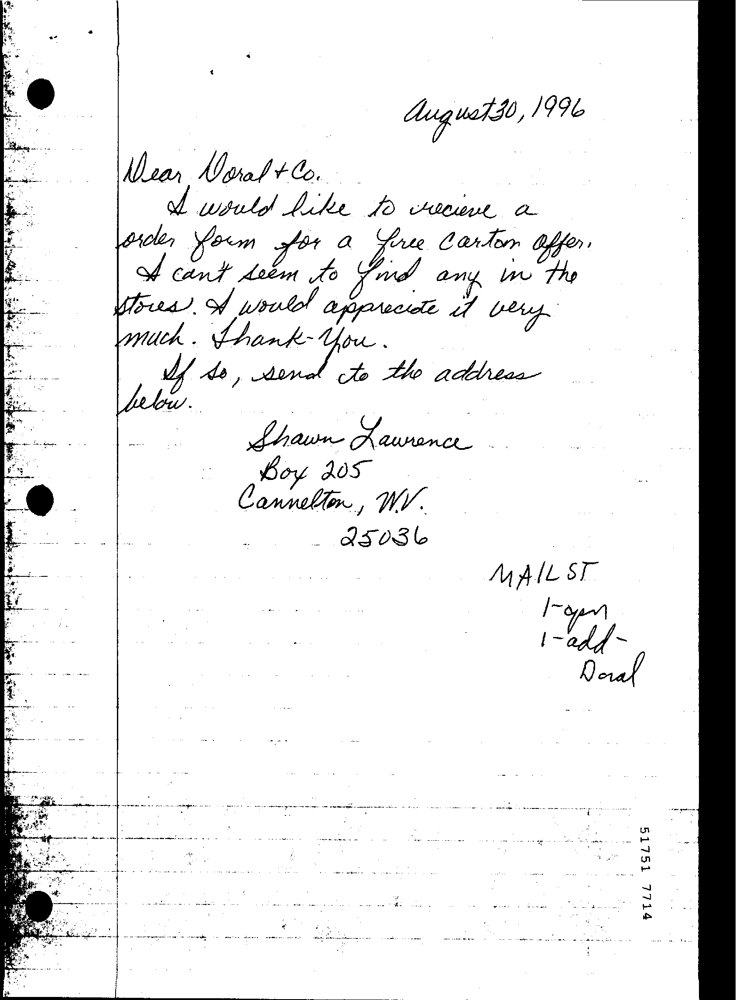 August 30, 1996
Dear Doral + Co.
I would like to recieve a
order form for a free carton offer.
I can't seem to find any in the
stores. I would appreciate it very
much. Thank-You.
If so, send to the address
below.
Shawn Lawrence
Box 205
Cannelton, W.V.
25036
MAIL ST
1-
1-add-
Doral
51751 7714